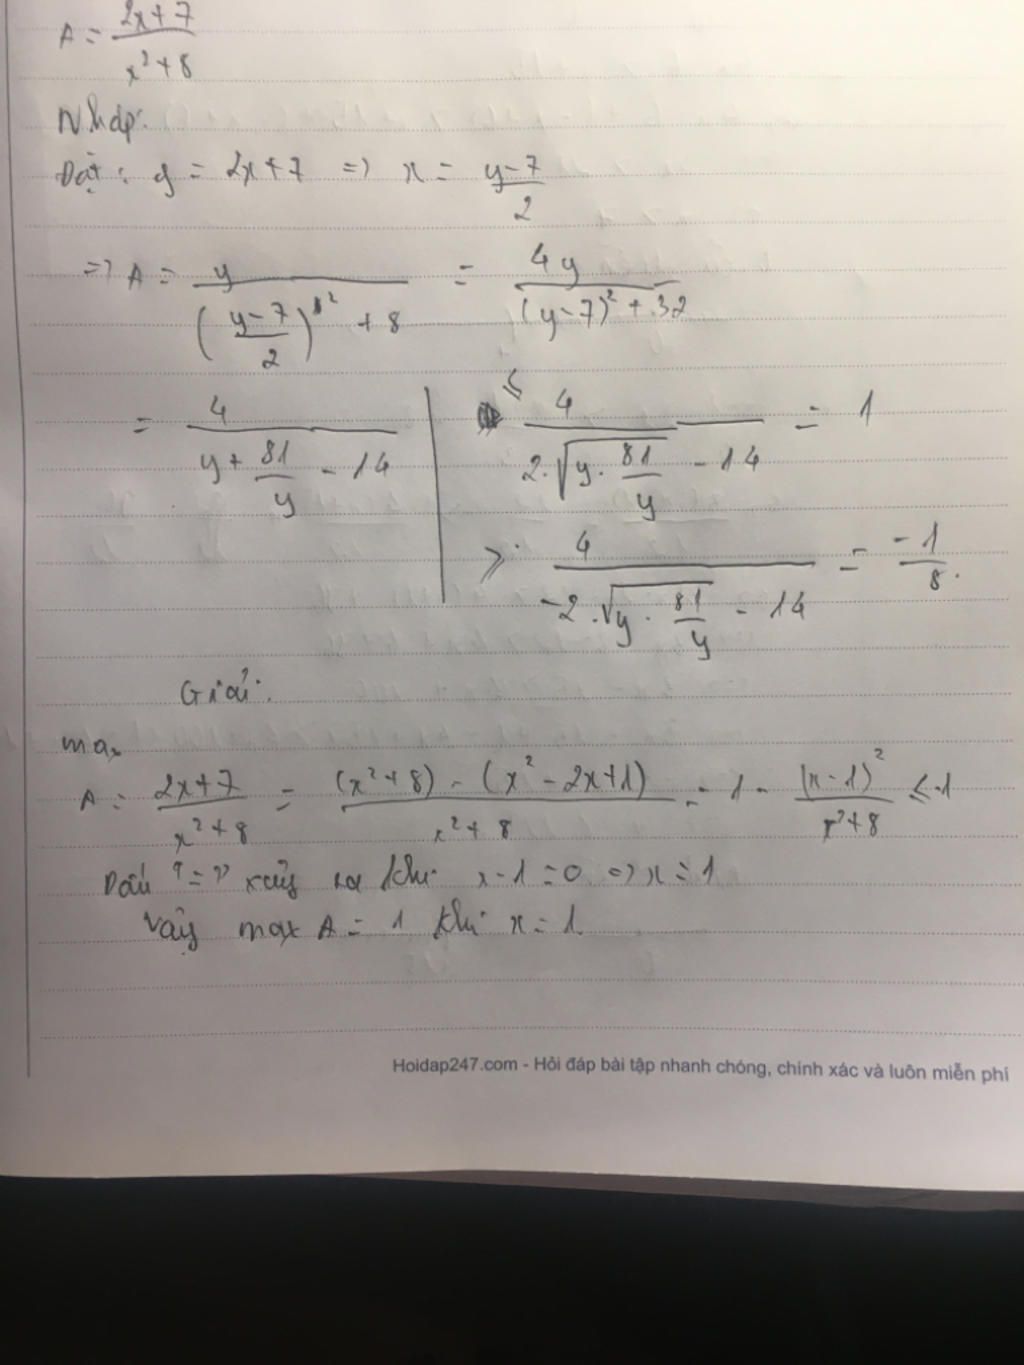 A = (2x+7)/(x²+8)
Nháp:
Đặt: y = 2x+7 => x = (y-7)/2
=> A = y/(((y-7)/2)² + 8) = 4y/((y-7)² + 32)
= 4/(y + 81/y - 14) | ≤ 4/(2.√(y . 81/y) - 14) = 1
≥ 4/(-2.√(y . 81/y) - 14) = -1/8.
Giải:
max
A = (2x+7)/(x²+8) = ((x²+8) - (x²-2x+1))/(x²+8) = 1 - (x-1)²/(x²+8) ≤ 1
Dấu "=" xảy ra khi x-1=0 => x=1
Vậy max A = 1 khi x = 1.
Hoidap247.com - Hỏi đáp bài tập nhanh chóng, chính xác và luôn miễn phí